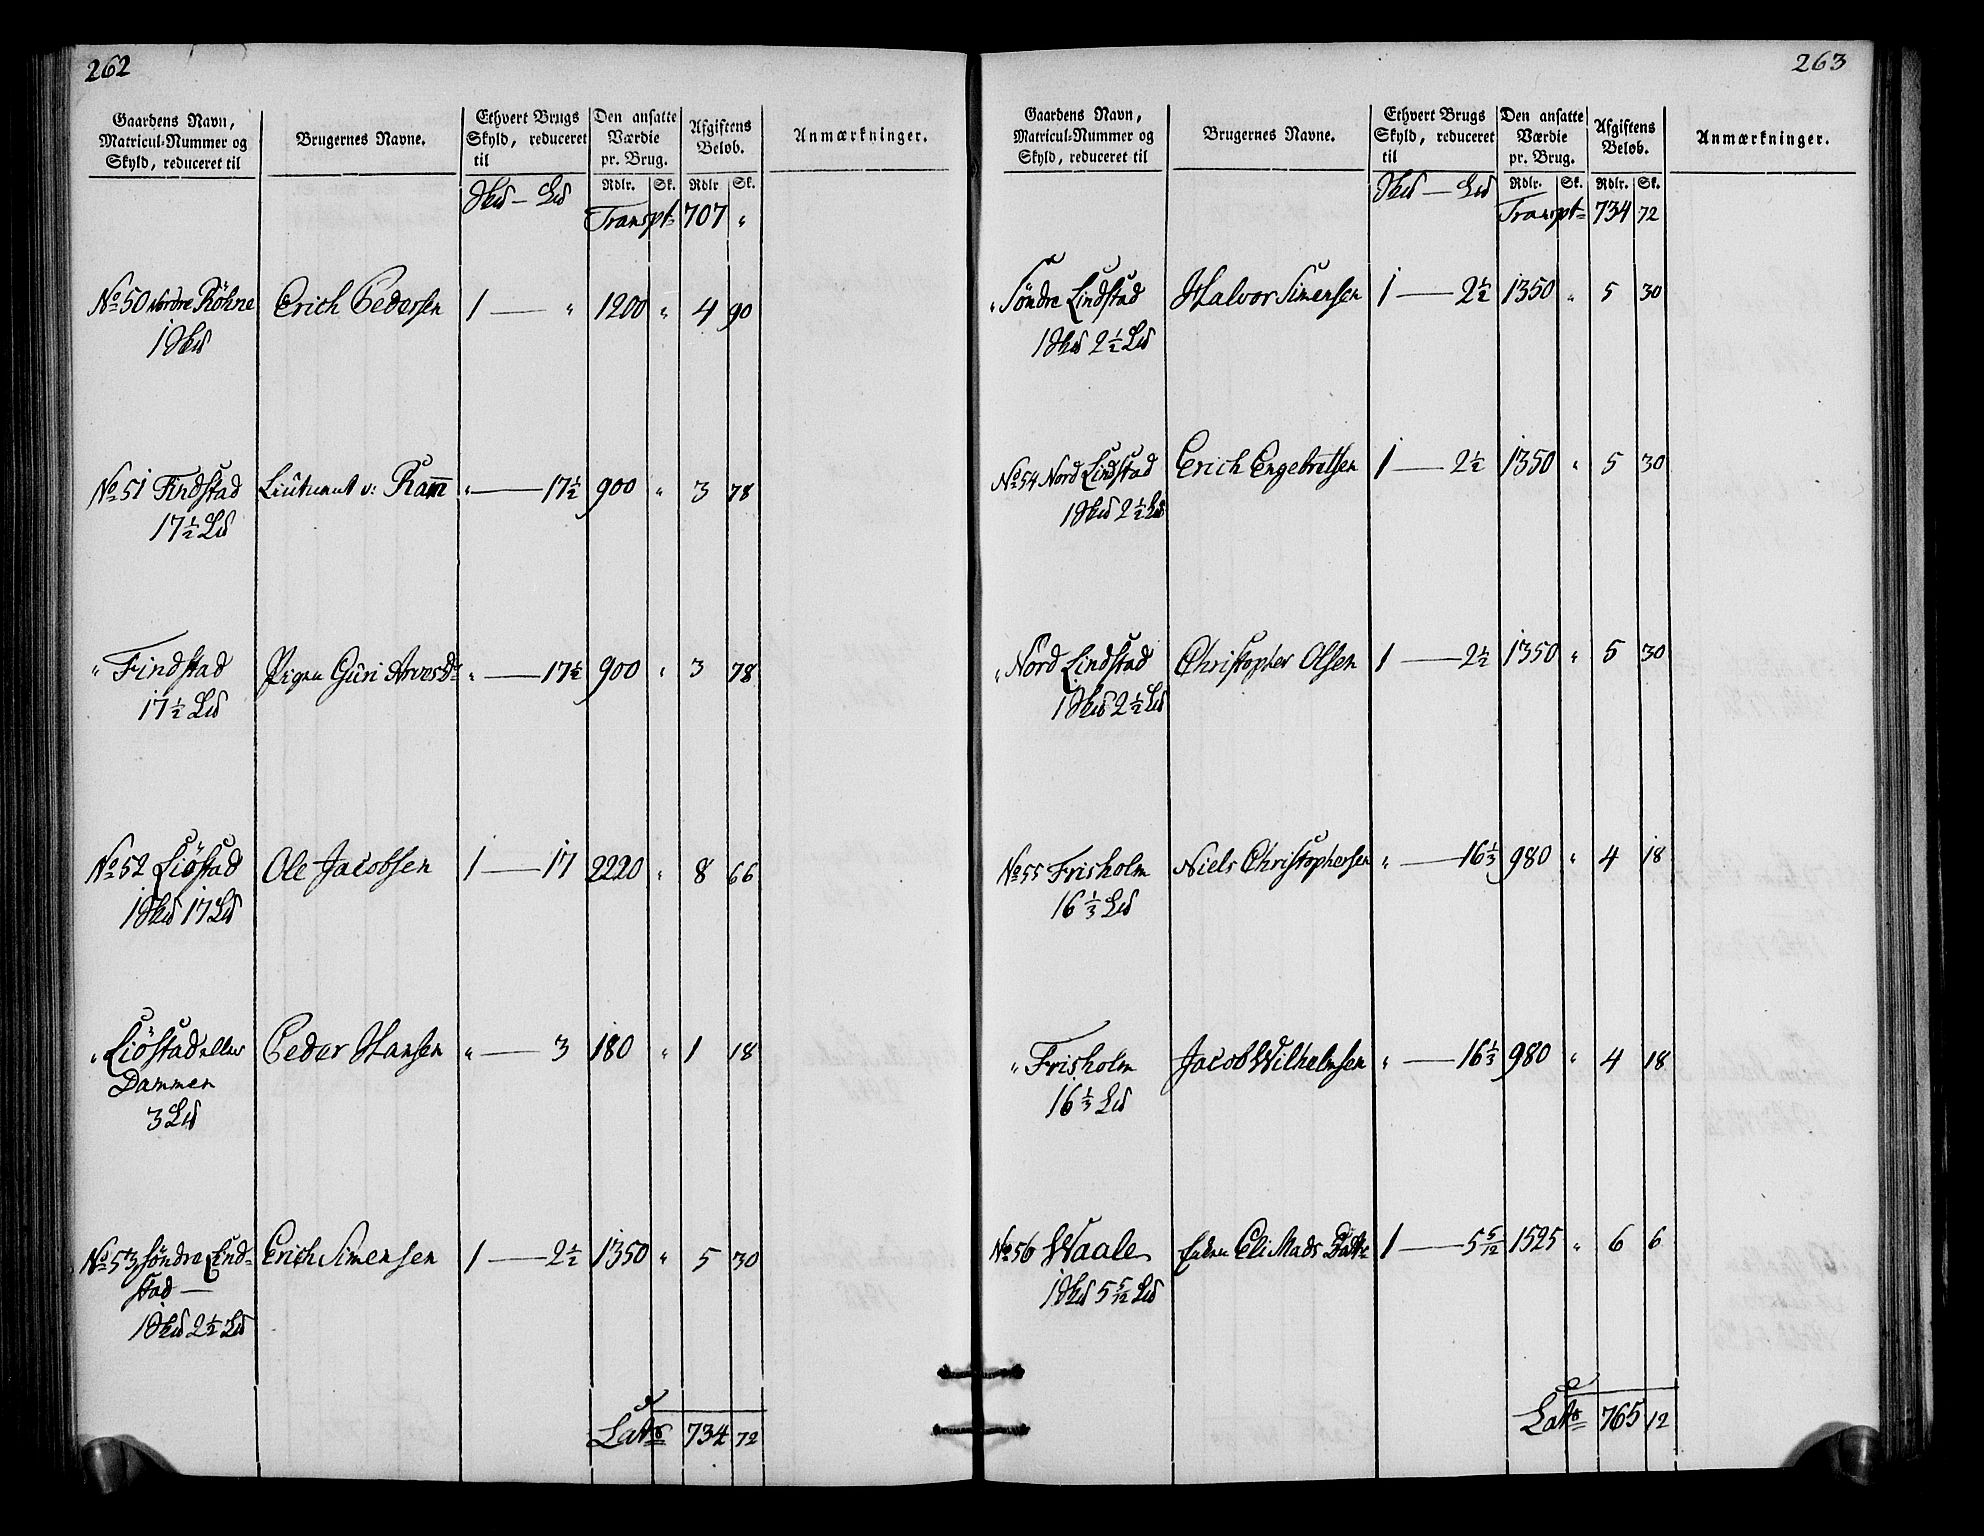 262
Gaardens Navn,
Matricul-Nummer og
Skyld, reduceret til
Brugernes Navne.
Ethvert Brugs
Skyld, reduceret
til
Den ansatte
Værdie
pr. Brug.
Afgiftens
Beløb.
Anmærkninger.
Rdlr. Sk. Rdlr Sk.
Skd — Ld
Transpt 707 "
No 50 Nordre Röhne Erich Pedersen 1 — " 1200 " 4 90
1 Skd
No 51 Findstad Lieutenant v: Ram̄ " — 17½ 900 " 3 78
17½ Ld
" Findstad Pigen Guri Arvesd: " — 17½ 900 " 3 78
17½ Ld
No 52 Liöstad Ole Jacobsen 1 — 17 2220 " 8 66
1 Skd 17 Ld
" Liöstad eller Peder Hansen " — 3 180 " 1 18
Dammen
3 Ld
No 53 Söndre Lind- Erich Simensen 1 — 2½ 1350 " 5 30
stad —
1 Skd 2½ Ld
Lats 734 72
263
Gaardens Navn,
Matricul-Nummer og
Skyld, reduceret til
Brugernes Navne.
Ethvert Brugs
Skyld, reduceret
til
Den ansatte
Værdie
pr. Brug.
Afgiftens
Beløb.
Anmærkninger.
Rdlr. Sk. Rdlr. Sk.
Skd — Ld
Transpt 734 72
" Söndre Lindstad Halvor Simensen 1 — 2½ 1350 " 5 30
1 Skd 2½ Ld
No 54 Nord Lindstad Erich Engebretsen 1 — 2½ 1350 " 5 30
1 Skd 2½ Ld
" Nord Lindstad Christopher Olsen 1 — 2½ 1350 " 5 30
1 Skd 2½ Ld
No 55 Frisholm Niels Christophersen " — 16⅓ 980 " 4 18
16⅓ Ld
" Frisholm Jacob Wilhelmsen " — 16⅓ 980 " 4 18
16⅓ Ld
No 56 Waale Enken Eli Mads Datte 1 — 5 5/12 1525 " 6 6
1 Skd 5 5/12 Ld
Lats 765 12